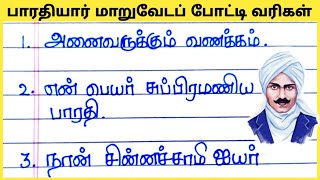 பாரதியார் மாறுவேடப் போட்டி வரிகள்
1. அனைவருக்கும் வணக்கம்.
2. என் பெயர் சுப்பிரமணிய
பாரதி.
3. நான் சின்னச்சாமி ஐயர்